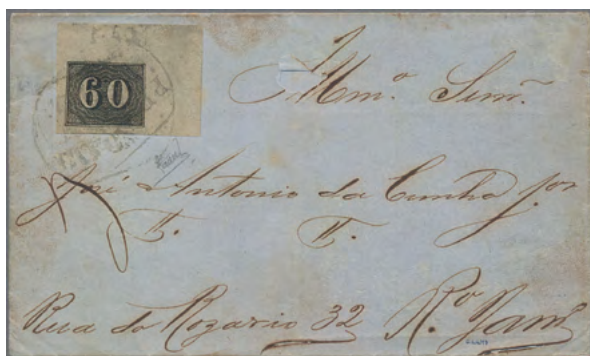 60
Illmo. Senr.
José Antonio da Cunha Jor
T. T.
Rua do Rozario 32 R.o Jano